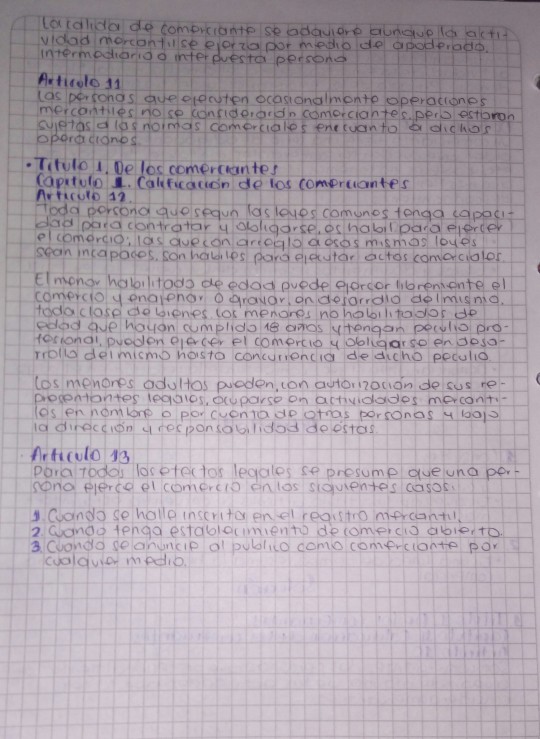 La calidad de comerciante se adquiere aunque la acti-
vidad mercantil se ejerza por medio de apoderado,
intermediario o interpuesta persona
Articulo 11
Las personas que ejecuten ocasionalmente operaciones
mercantiles no se considerarán comerciantes, pero estaran
sujetas a las normas comerciales en cuanto a dichas
operaciones.
• Titulo 1. De los comerciantes
Capitulo 1. Calificación de los comerciantes
Articulo 12
Toda persona que segun las leyes comunes tenga capaci-
dad para contratar y obligarse, es habil para ejercer
el comercio; las que con arreglo a esas mismas leyes
sean incapaces, son habiles para ejecutar actos comerciales.
El menor habilitado de edad puede ejercer libremente el
comercio y enajenar o gravar, en desarrollo del mismo,
toda clase de bienes. Los menores no habilitados de
edad que hayan cumplido 18 años y tengan peculio pro-
fesional, pueden ejercer el comercio y obligarse en desa-
rrollo del mismo hasta concurrencia de dicho peculio.
Los menores adultos pueden, con autorización de sus re-
presentantes legales, ocuparse en actividades mercanti-
les en nombre o por cuenta de otras personas y bajo
la dirección y responsabilidad de éstas.
Articulo 13
Para todos los efectos legales se presume que una per-
sona ejerce el comercio en los siguientes casos:
1. Cuando se halle inscrita en el registro mercantil.
2. Cuando tenga establecimiento de comercio abierto.
3. Cuando se anuncie al publico como comerciante por
cualquier medio.